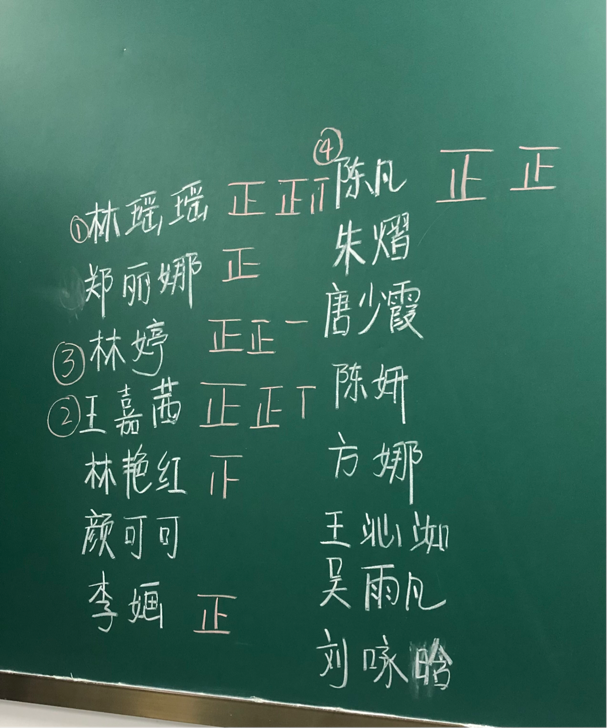 ①林瑶瑶 正正丅
郑丽娜 正
③林婷 正正一
②王嘉茜 正正丅
林艳红 正
颜可可
李婳 正
④陈凡 正正
朱熠
唐少霞
陈妍
方娜
王沁
吴雨凡
刘咏晗